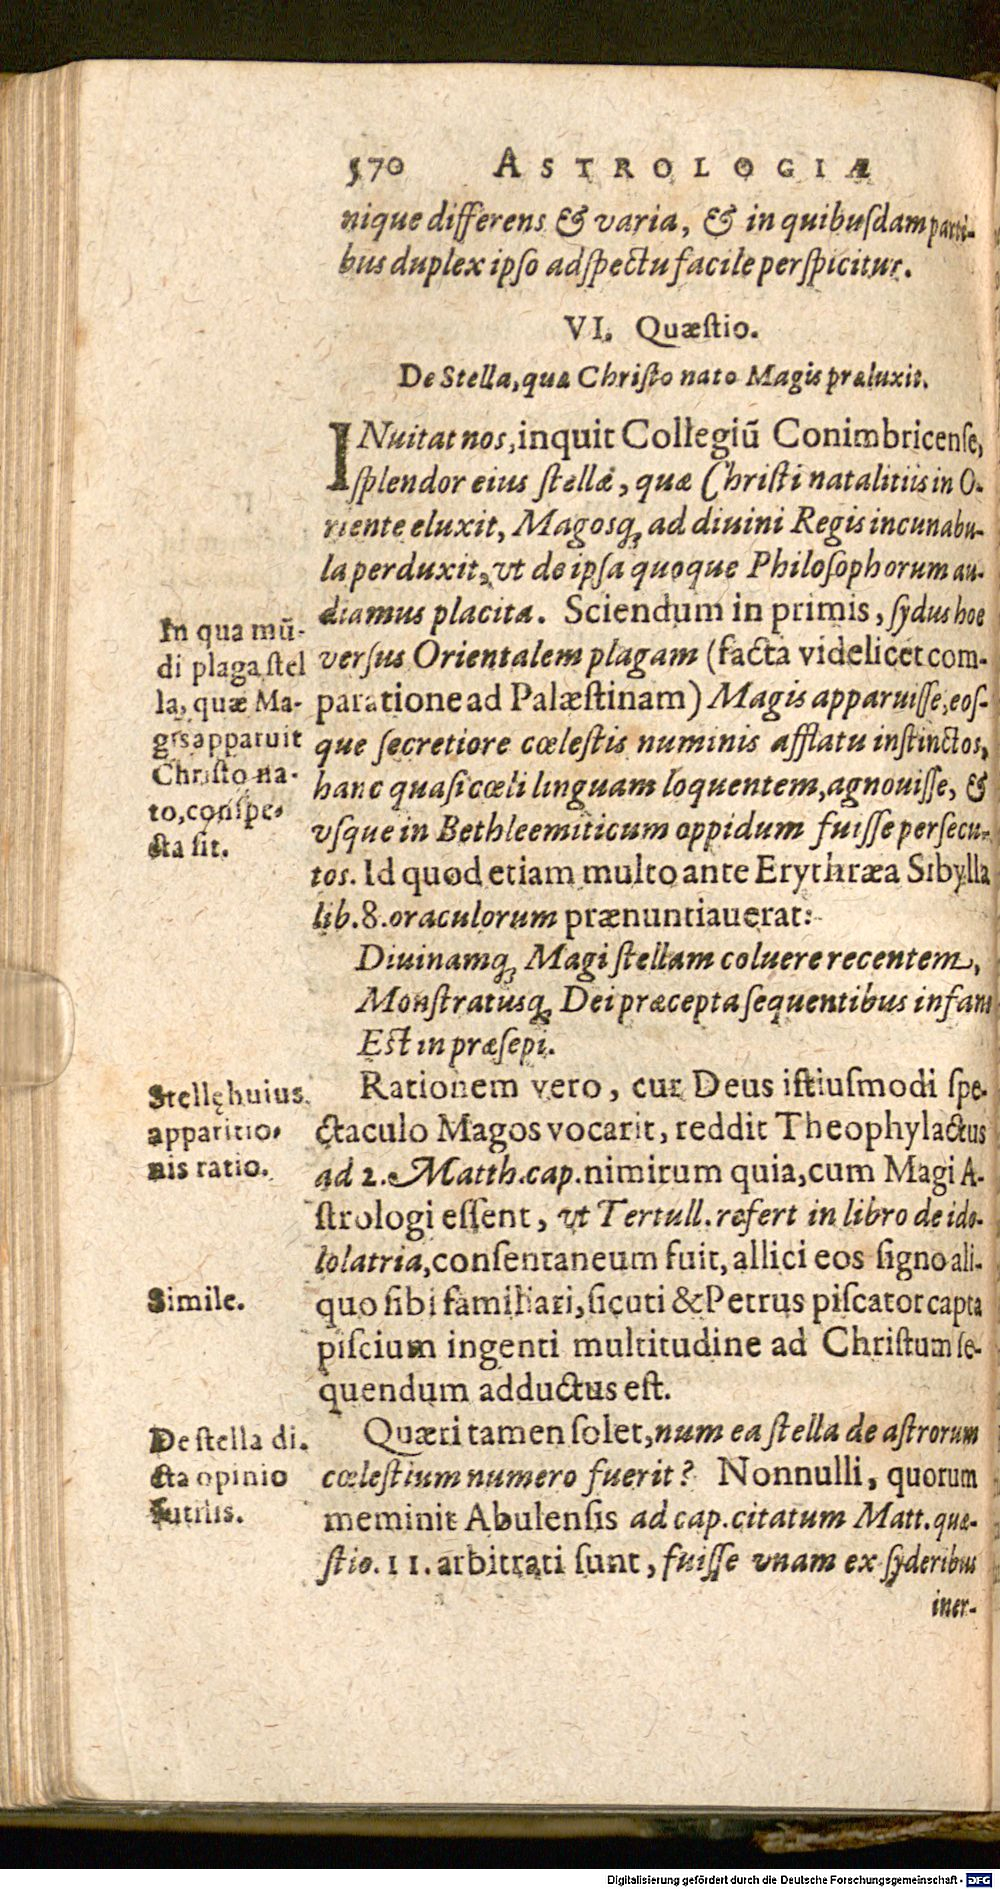 570 ASTROLOGIÆ
nique differens & varia, & in quibuſdam parti-
bus duplex ipſo adſpectu facile perſpicitur.
VI. Quæſtio.
De Stella, quæ Chriſto nato Magis præluxit.
INuitat nos, inquit Collegiũ Conimbricenſe,
ſplendor eius ſtellæ, quæ Chriſti natalitiis in O-
riente eluxit, Magosq; ad diuini Regis incunabu-
la perduxit, vt de ipſa quoque Philoſophorum au-
diamus placita. Sciendum in primis, ſydus hoc
verſus Orientalem plagam (facta videlicet com-
paratione ad Palæſtinam) Magis apparuiſſe, eoſ-
que ſecretiore cœleſtis numinis afflatu inſtinctos,
hanc quaſi cœli linguam loquentem, agnouiſſe, &
vſque in Bethleemiticum oppidum fuiſſe perſecu-
tos. Id quod etiam multo ante Erythræa Sibylla
lib. 8. oraculorum prænuntiauerat:
Diuinamq; Magi ſtellam coluere recentem,
Monſtratusq; Dei præcepta ſequentibus infans
Eſt in præſepi.
Rationem vero, cur Deus iſtiuſmodi ſpe-
ctaculo Magos vocarit, reddit Theophylactus
ad 2. Matth. cap. nimirum quia, cum Magi A-
ſtrologi eſſent, vt Tertull. refert in libro de ido-
lolatria, conſentaneum fuit, allici eos ſigno ali-
quo ſibi familiari, ſicuti & Petrus piſcator capta
piſcium ingenti multitudine ad Chriſtum ſe-
quendum adductus eſt.
Quæri tamen ſolet, num ea ſtella de aſtrorum
cœleſtium numero fuerit? Nonnulli, quorum
meminit Abulenſis ad cap. citatum Matt. quæ-
ſtio. 11. arbitrati ſunt, fuiſſe vnam ex ſyderibus
iner-
In qua mũ-
di plaga ſtel
la, quæ Ma-
gis apparuit
Chriſto na-
to, conſpe-
cta ſit.
Stellę huius
apparitio-
nis ratio.
Simile.
De ſtella di-
cta opinio
futilis.
Digitalisierung gefördert durch die Deutsche Forschungsgemeinschaft - DFG